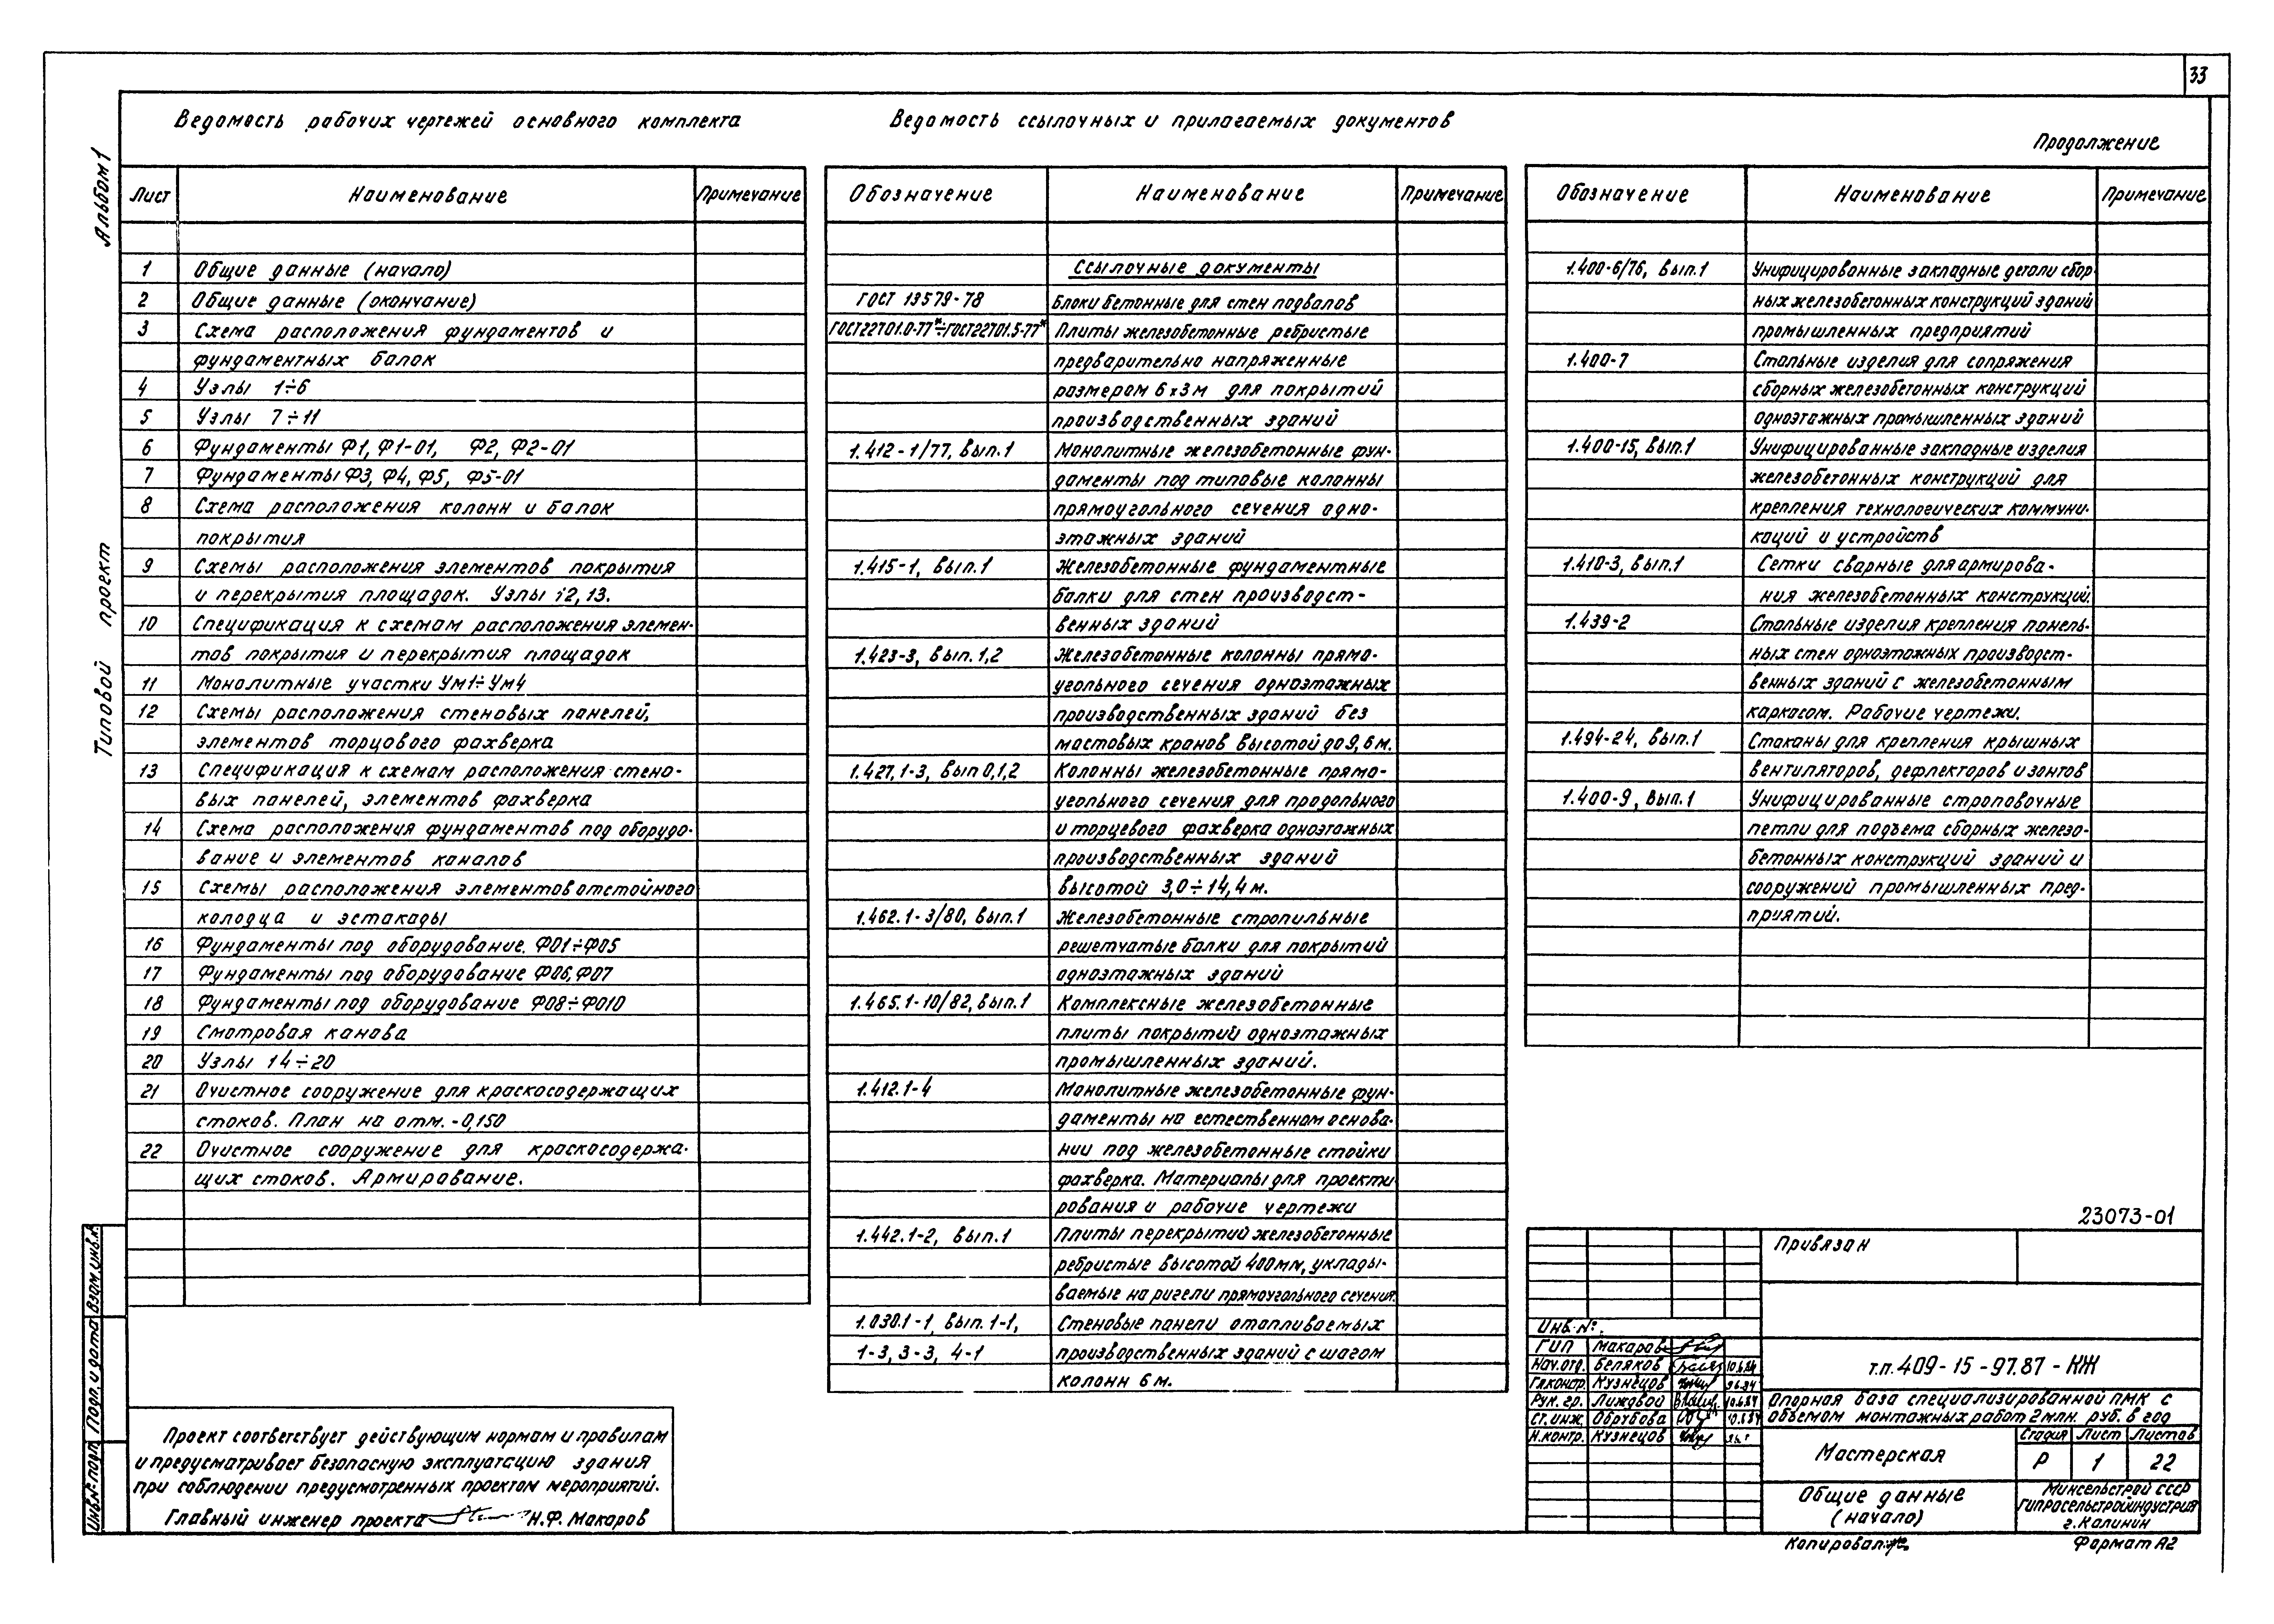 33
Альбом 1
Типовой проект
Ведомость рабочих чертежей основного комплекта
Лист Наименование Примечание
1 Общие данные (начало)
2 Общие данные (окончание)
3 Схема расположения фундаментов и
фундаментных балок
4 Узлы 1÷6
5 Узлы 7÷11
6 Фундаменты Ф1, Ф1-01, Ф2, Ф2-01
7 Фундаменты Ф3, Ф4, Ф5, Ф5-01
8 Схема расположения колонн и балок
покрытия
9 Схемы расположения элементов покрытия
и перекрытия площадок. Узлы 12, 13.
10 Спецификация к схемам расположения элемен-
тов покрытия и перекрытия площадок
11 Монолитные участки Ум1÷Ум4
12 Схемы расположения стеновых панелей,
элементов торцового фахверка
13 Спецификация к схемам расположения стено-
вых панелей, элементов фахверка
14 Схема расположения фундаментов под оборудо-
вание и элементов каналов
15 Схемы расположения элементов отстойного
колодца и эстакады
16 Фундаменты под оборудование. Ф01÷Ф05
17 Фундаменты под оборудование Ф06, Ф07
18 Фундаменты под оборудование Ф08÷Ф010
19 Смотровая канава
20 Узлы 14÷20
21 Очистное сооружение для краскосодержащих
стоков. План на отм. -0,150
22 Очистное сооружение для краскосодержа-
щих стоков. Армирование.
Ведомость ссылочных и прилагаемых документов
Обозначение Наименование Примечание
Ссылочные документы
ГОСТ 13579-78 Блоки бетонные для стен подвалов
ГОСТ22701.0-77*÷ГОСТ22701.5-77* Плиты железобетонные ребристые
предварительно напряженные
размером 6х3м для покрытий
производственных зданий
1.412-1/77, вып.1 Монолитные железобетонные фун-
даменты под типовые колонны
прямоугольного сечения одно-
этажных зданий
1.415-1, вып.1 Железобетонные фундаментные
балки для стен производст-
венных зданий
1.423-3, вып.1,2 Железобетонные колонны прямо-
угольного сечения одноэтажных
производственных зданий без
мостовых кранов высотой до 9,6м.
1.427.1-3, вып 0,1,2 Колонны железобетонные прямо-
угольного сечения для продольного
и торцевого фахверка одноэтажных
производственных зданий
высотой 3,0÷14,4м.
1.462.1-3/80, вып.1 Железобетонные стропильные
решетчатые балки для покрытий
одноэтажных зданий
1.465.1-10/82, вып.1 Комплексные железобетонные
плиты покрытий одноэтажных
промышленных зданий.
1.412.1-4 Монолитные железобетонные фун-
даменты на естественном основа-
нии под железобетонные стойки
фахверка. Материалы для проекти
рования и рабочие чертежи
1.442.1-2, вып.1 Плиты перекрытий железобетонные
ребристые высотой 400мм, уклады-
ваемые на ригели прямоугольного сечения.
1.030.1-1, вып. 1-1, Стеновые панели отапливаемых
1-3, 3-3, 4-1 производственных зданий с шагом
колонн 6 м.
Продолжение
Обозначение Наименование Примечание
1.400-6/76, вып.1 Унифицированные закладные детали сбор-
ных железобетонных конструкций зданий
промышленных предприятий
1.400-7 Стальные изделия для сопряжения
сборных железобетонных конструкций
одноэтажных промышленных зданий
1.400-15, вып.1 Унифицированные закладные изделия
железобетонных конструкций для
крепления технологических коммуни-
каций и устройств
1.410-3, вып.1 Сетки сварные для армирова-
ния железобетонных конструкций.
1.439-2 Стальные изделия крепления панель-
ных стен одноэтажных производст-
венных зданий с железобетонным
каркасом. Рабочие чертежи.
1.494-24, вып.1 Стаканы для крепления крышных
вентиляторов, дефлекторов и зонтов
1.400-9, вып.1 Унифицированные строповочные
петли для подъема сборных железо-
бетонных конструкций зданий и
сооружений промышленных пред-
приятий.
Проект соответствует действующим нормам и правилам
и предусматривает безопасную эксплуатацию здания
при соблюдении предусмотренных проектом мероприятий.
Главный инженер проекта Н.Ф. Макаров
Инв.№ подл. Подп. и дата Взам.инв.№
23073-01
Привязан
Инв.№.
ГИП Макаров
Нач.отд. Беляков
Гл.констр. Кузнецов
Рук. гр. Лиждвой
Ст.инж. Обрубова
Н.контр. Кузнецов
т.п. 409-15-97.87-КЖ
Опорная база специализированной ПМК с
объемом монтажных работ 2 млн. руб. в год
Мастерская
Стадия Лист Листов
Р 1 22
Общие данные
(начало)
Минсельстрой СССР
Гипросельстройиндустрия
г. Калинин
Копировал
Формат А2